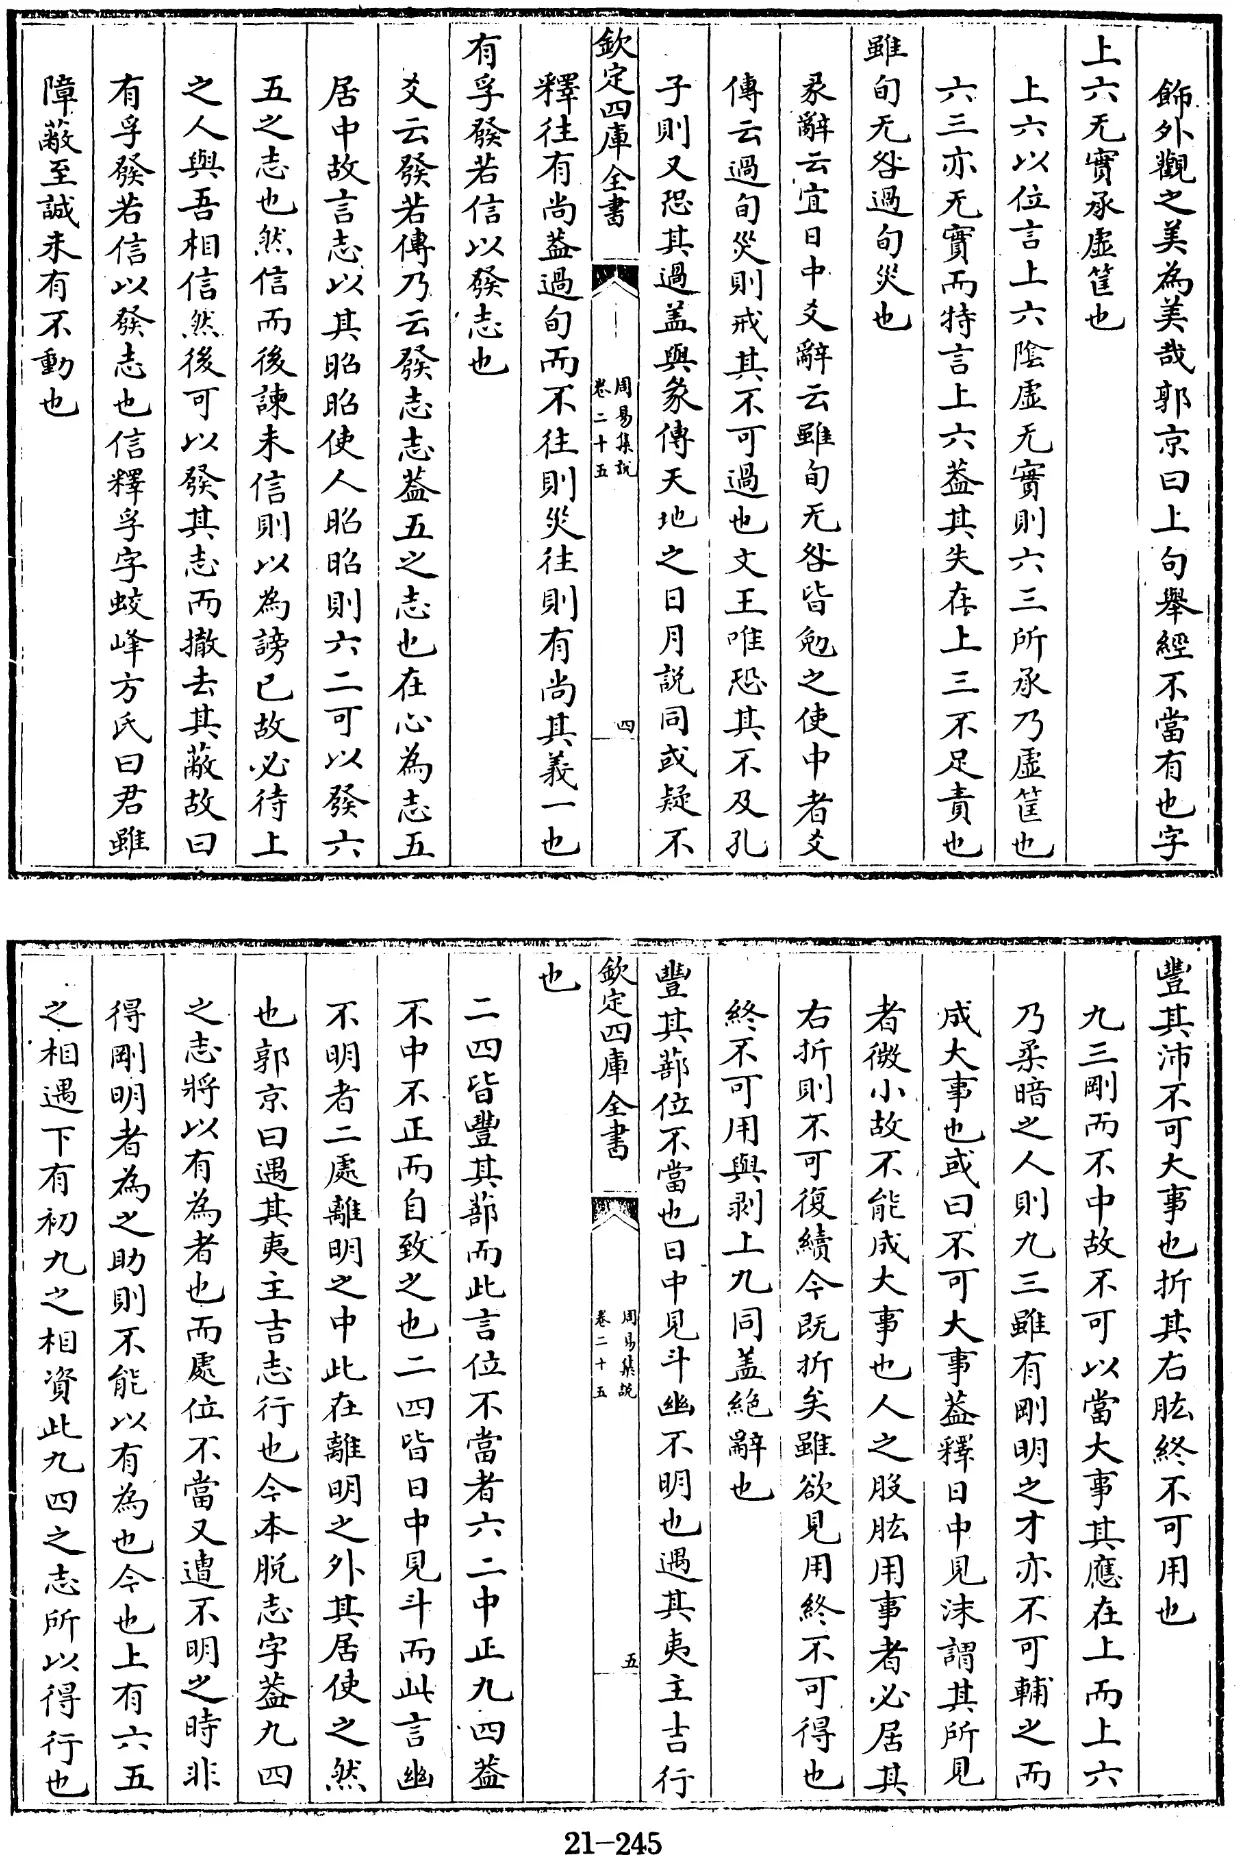 飾外觀之美為美哉郭京曰上句舉經不當有也字
上六无實承虛筐也
上六以位言上六陰虛无實則六三所承乃虛筐也
六三亦无實而特言上六葢其失在上三不足責也
雖旬无咎過旬災也
彖辭云宜日中爻辭云雖旬无咎皆勉之使中者爻
傳云過旬災則戒其不可過也文王唯恐其不及孔
子則又恐其過盖與彖傳天地之日月說同或疑不
欽定四庫全書
周易集說
卷二十五
四
釋往有尚葢過旬而不往則災往則有尚其義一也
有孚發若信以發志也
爻云發若傳乃云發志志葢五之志也在心為志五
居中故言志以其昭昭使人昭昭則六二可以發六
五之志也然信而後諫未信則以為謗已故必待上
之人與吾相信然後可以發其志而撤去其蔽故曰
有孚發若信以發志也信釋孚字蛟峰方氏曰君雖
障蔽至誠未有不動也
豐其沛不可大事也折其右肱終不可用也
九三剛而不中故不可以當大事其應在上而上六
乃柔暗之人則九三雖有剛明之才亦不可輔之而
成大事也或曰不可大事葢釋日中見沬謂其所見
者微小故不能成大事也人之股肱用事者必居其
右折則不可復續今既折矣雖欲見用終不可得也
終不可用與剥上九同盖絕辭也
豐其蔀位不當也日中見斗幽不明也遇其夷主吉行
欽定四庫全書
周易集說
卷二十五
五
也
二四皆豐其蔀而此言位不當者六二中正九四葢
不中不正而自致之也二四皆日中見斗而此言幽
不明者二處離明之中此在離明之外其居使之然
也郭京曰遇其夷主吉志行也今本脱志字葢九四
之志將以有為者也而處位不當又遭不明之時非
得剛明者為之助則不能以有為也今也上有六五
之相遇下有初九之相資此九四之志所以得行也
21-245